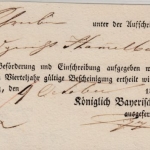 Schreiben unter der Aufschrif
Beförderung und Einschreibung aufgegeben w
n Vierteljahr gültige Bescheinigung ertheilt wi
, den 9 October 18
Königlich Bayerisch
ausgefer